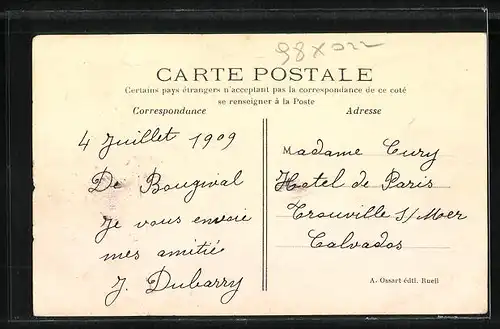 98X022
CARTE POSTALE
Certains pays étrangers n'acceptant pas la correspondance de ce coté
se renseigner à la Poste
Correspondance
Adresse
4 Juillet 1909
De Bougival
Je vous envoie
mes amitié
J. Dubarry
Madame Cury
Hotel de Paris
Trouville S/Mer
Calvados
A. Ossart édit. Rueil